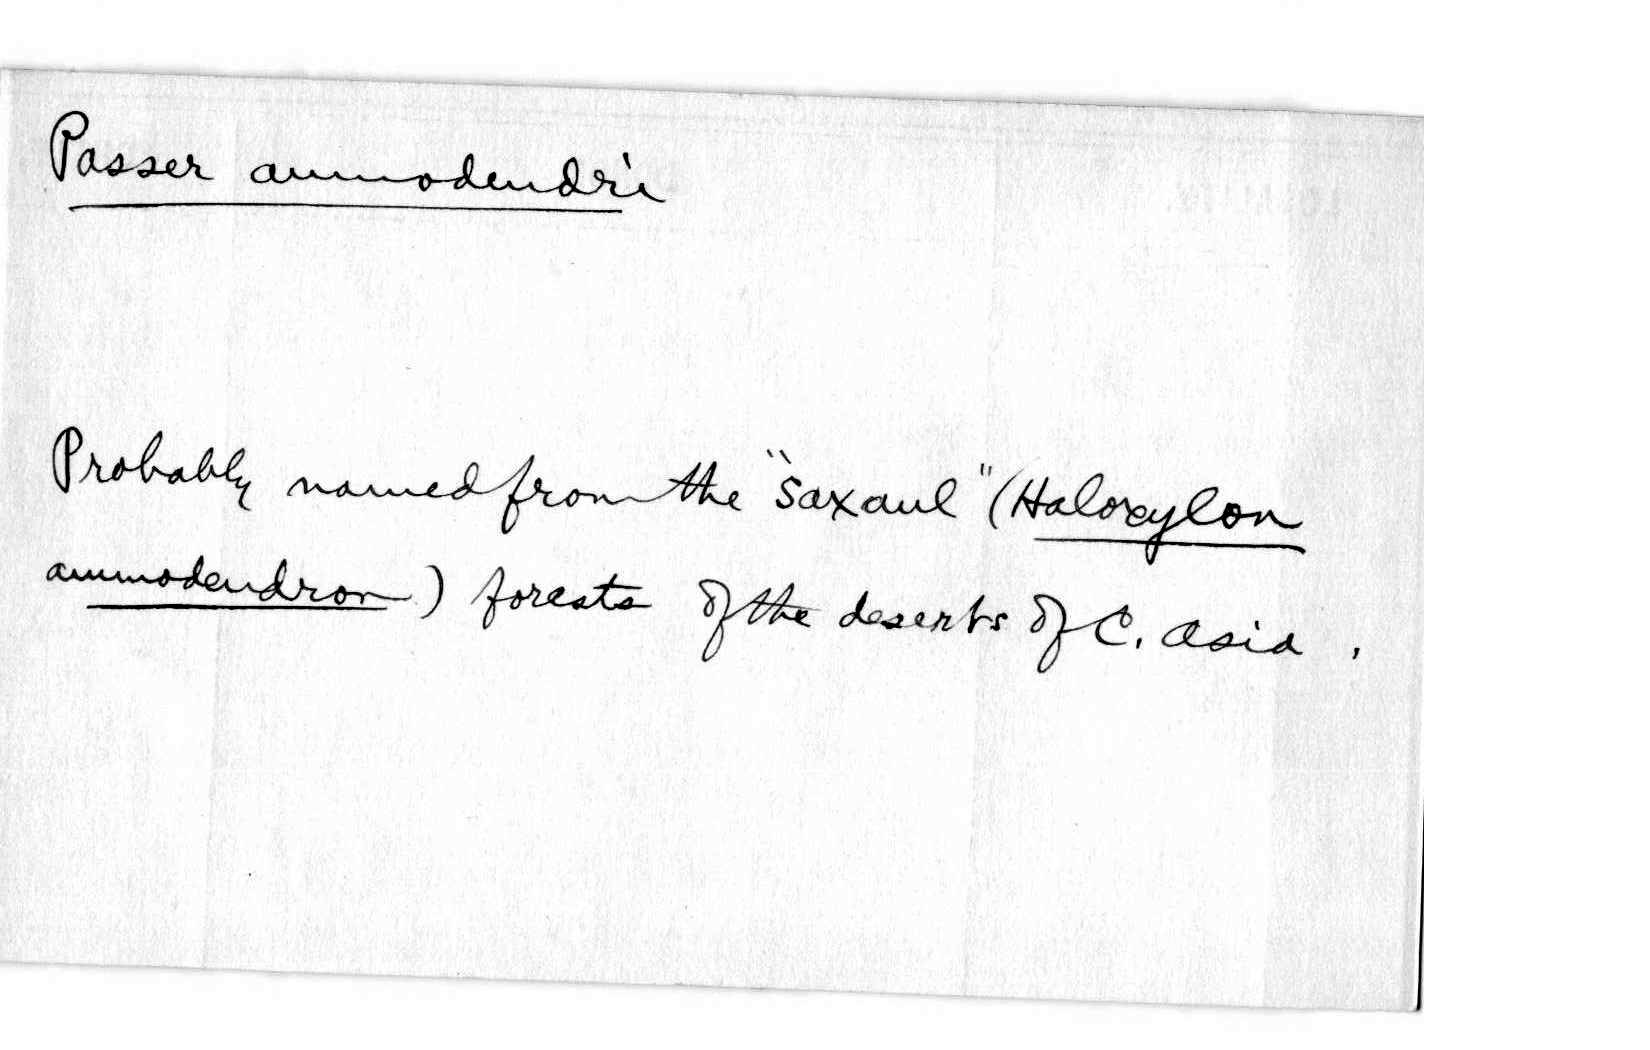 Passer ammodendri
Probably named from the "Saxaul" (Haloxylon
ammodendron) forests of the deserts of C. Asia.